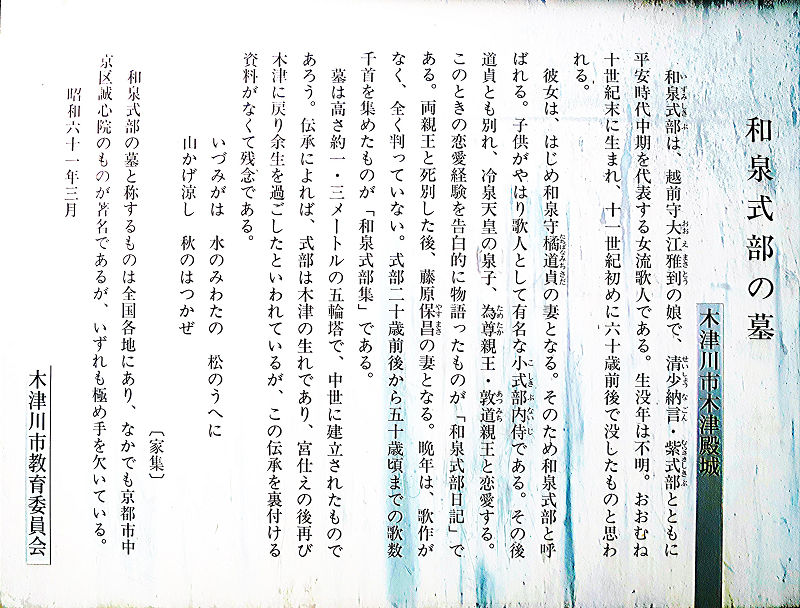 和泉式部の墓
木津川市木津殿城
和泉式部は、越前守大江雅到の娘で、清少納言・紫式部とともに
平安時代中期を代表する女流歌人である。生没年は不明。おおむね
十世紀末に生まれ、十一世紀初めに六十歳前後で没したものと思わ
れる。
彼女は、はじめ和泉守橘道貞の妻となる。そのため和泉式部と呼
ばれる。子供がやはり歌人として有名な小式部内侍である。その後
道貞とも別れ、冷泉天皇の皇子、為尊親王・敦道親王と恋愛する。
このときの恋愛経験を告白的に物語ったものが「和泉式部日記」で
ある。両親王と死別した後、藤原保昌の妻となる。晩年は、歌作が
なく、全く判っていない。式部二十歳前後から五十歳頃までの歌数
千首を集めたものが「和泉式部集」である。
墓は高さ約一・三メートルの五輪塔で、中世に建立されたもので
あろう。伝承によれば、式部は木津の生れであり、宮仕えの後再び
木津に戻り余生を過ごしたといわれているが、この伝承を裏付ける
資料がなくて残念である。
いづみがは　水のみわたの　松のうへに
山かげ涼し　秋のはつかぜ
〔家集〕
和泉式部の墓と称するものは全国各地にあり、なかでも京都市中
京区誠心院のものが著名であるが、いずれも極め手を欠いている。
昭和六十一年三月
木津川市教育委員会